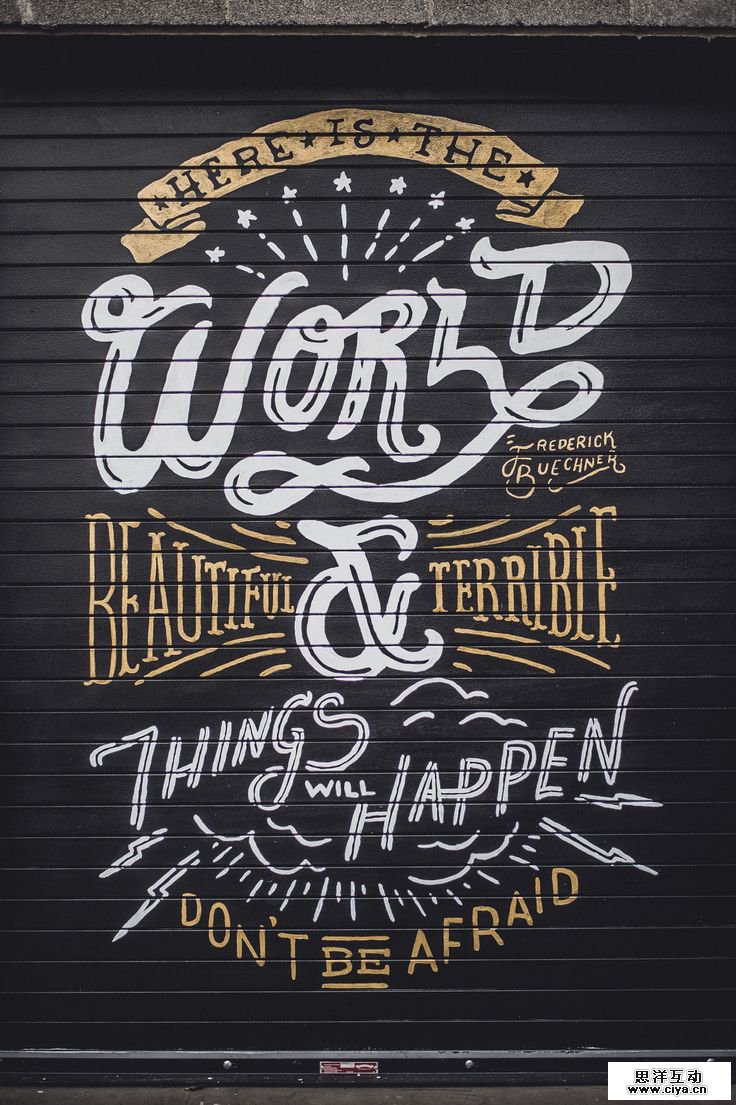 HERE ★ IS ★ THE ★
WORLD
FREDERICK
BUECHNER
BEAUTIFUL & TERRIBLE
THINGS WILL HAPPEN
DON'T BE AFRAID
思洋互动
www.ciya.cn